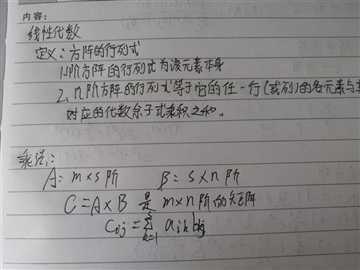 内容:
线性代数
定义: 方阵的行列式
1. 1阶方阵的行列式为该元素本身
2. n阶方阵的行列式等于它的任一行(或列)的各元素与其
对应的代数余子式乘积之和.
乘法:
A: m×s 阶 B: s×n 阶
C=A×B 是 m×n 阶的矩阵
Cij=∑ aik bkj